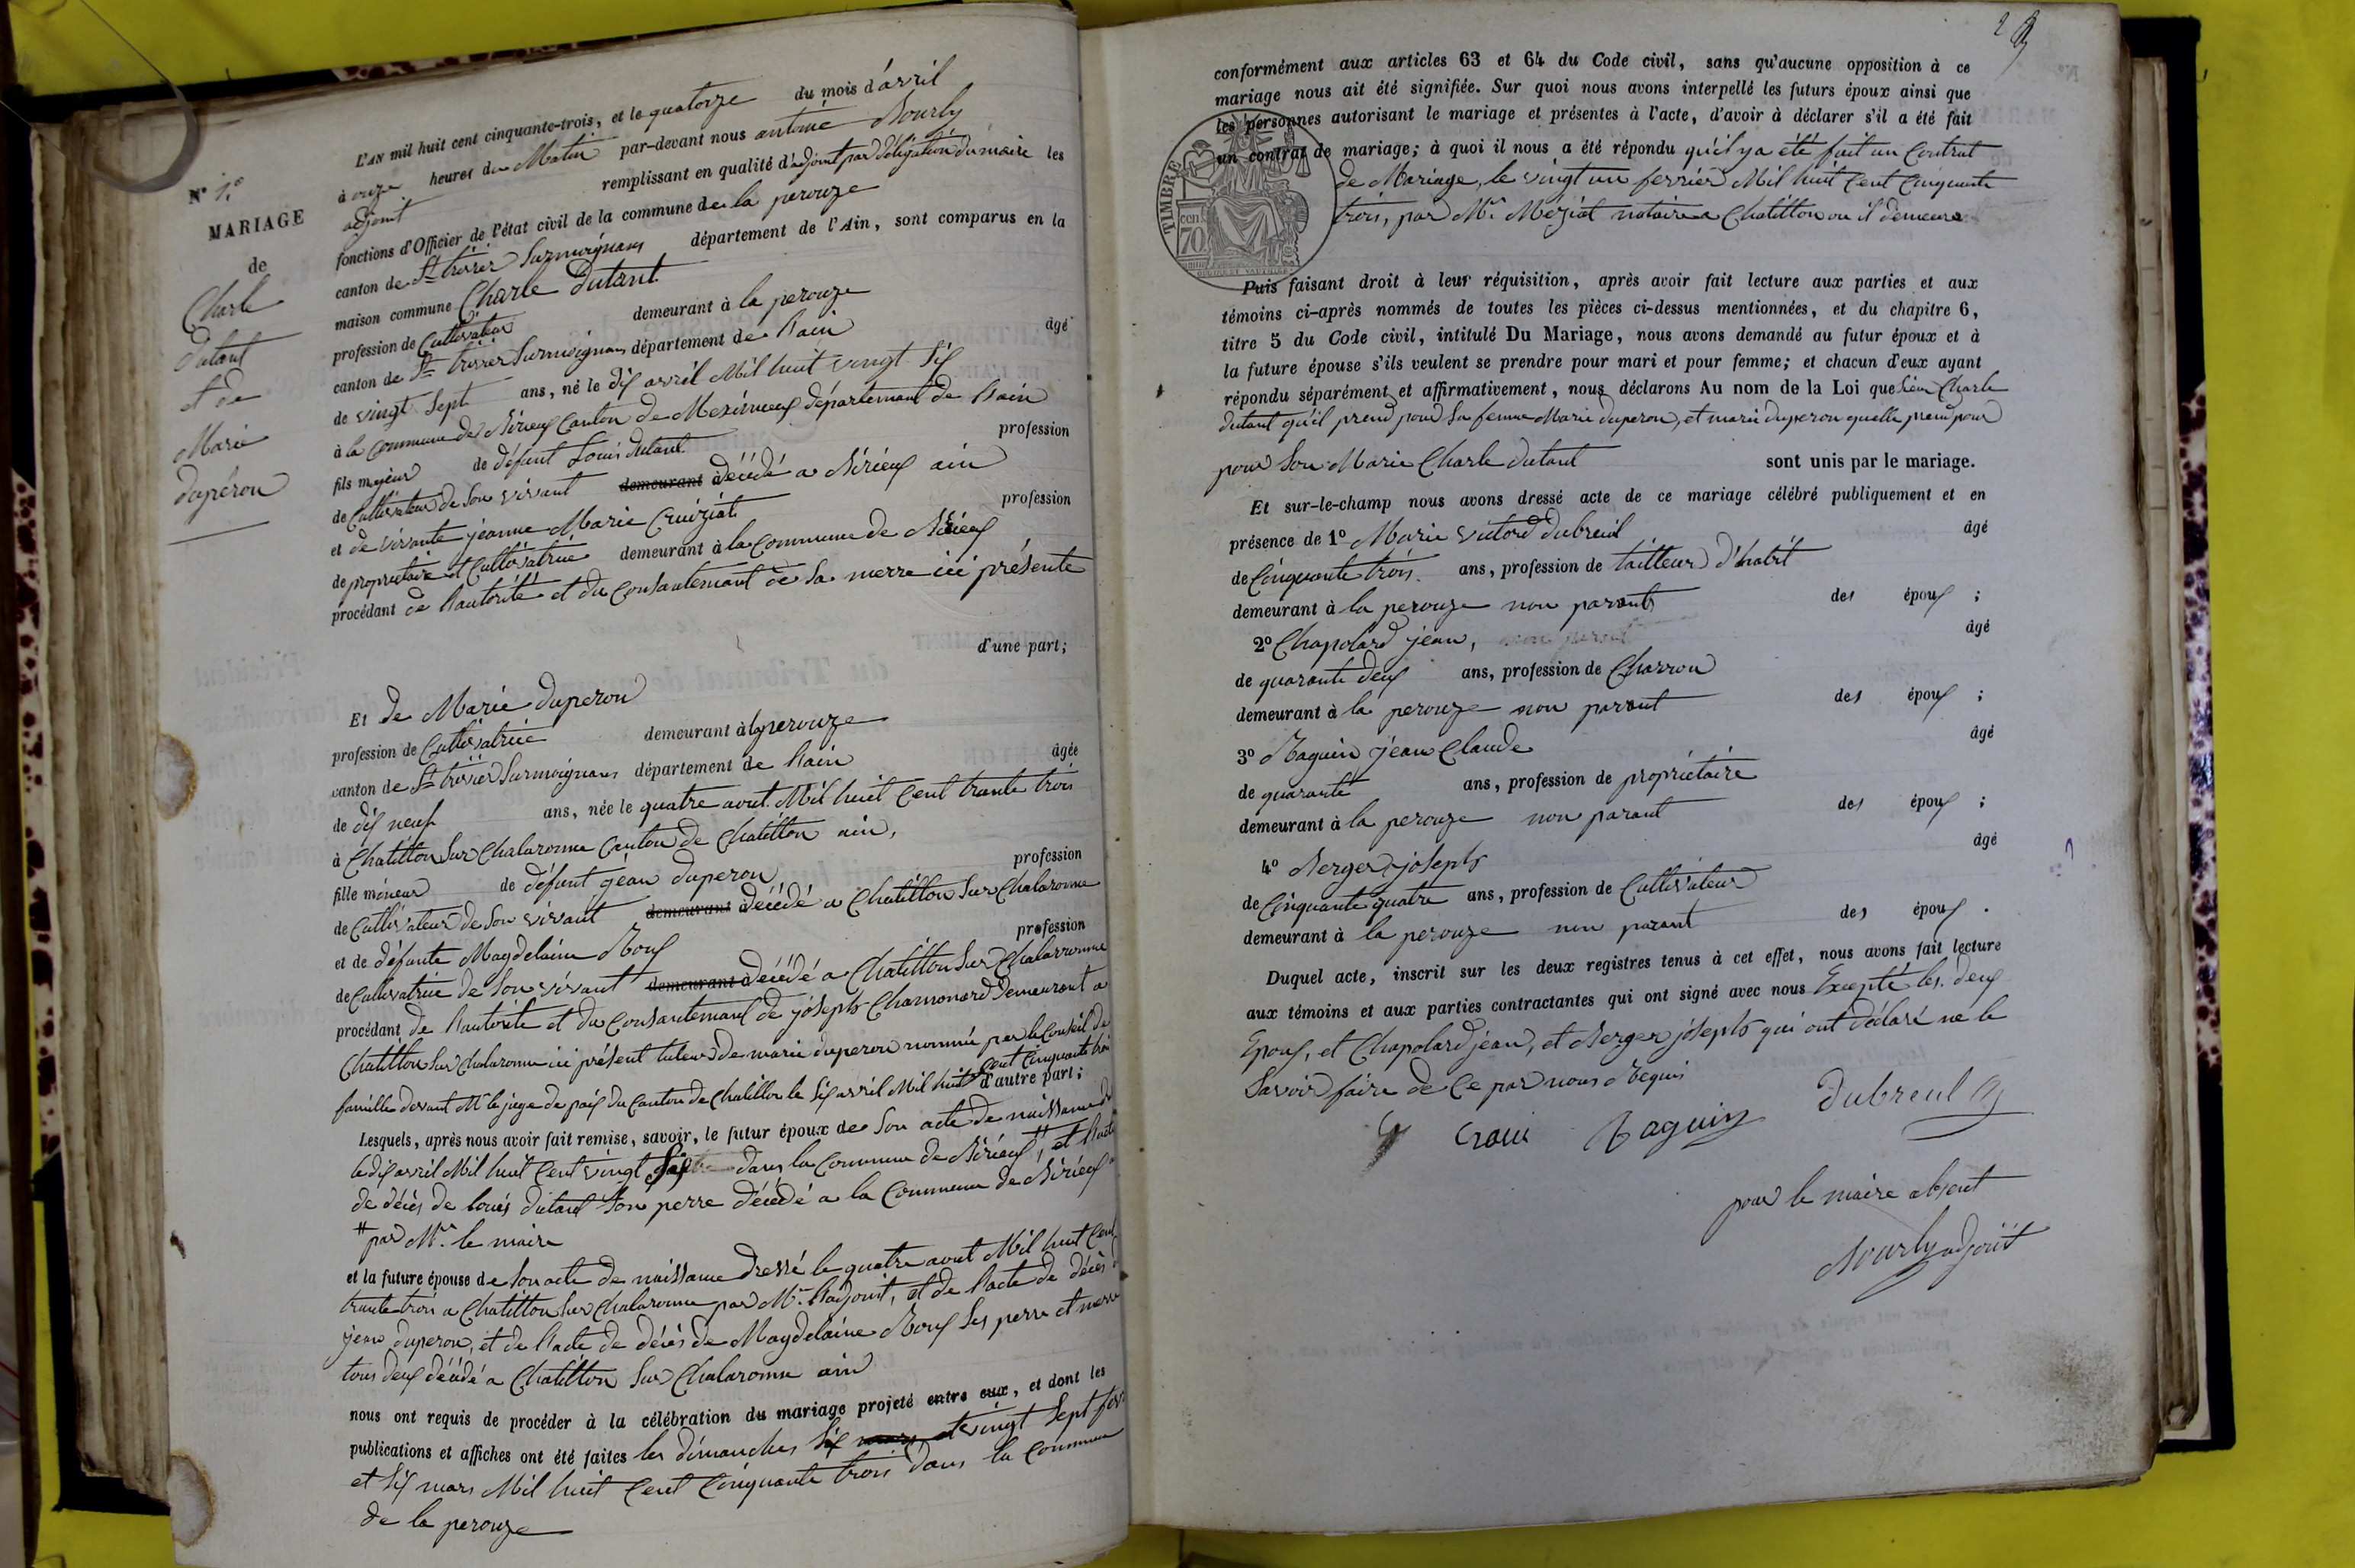 N° 1.er
MARIAGE
de
Charle
Dutant
et de
Marie
duperou
L'AN mil huit cent cinquante-trois, et le quatorze du mois d'avril
à onze heures du Matin par-devant nous antoine Nourly
adjoint remplissant en qualité d'adjoint par délégation du maire les
fonctions d'Officier de l'état civil de la commune de la perouze
canton de St trivier Surmoignans département de l'Ain, sont comparus en la
maison commune Charle Dutant
profession de Cultivateur demeurant à la perouze
canton de St trivier Surmoignans département de l'ain âgé
de vingt Sept ans, né le dix avril Mil huit vingt Six
à la Commune de Birieux Canton de Meximieux département de l'ain
fils majeur de défunt Louis dutant profession
de Cultivateur de Son vivant demeurant à décédé a Birieux ain
et de vivante jeanne Marie Cruiziat profession
de propriétaire et Cultivatrice demeurant à la Commune de Birieux
procédant de l'autorité et du Consantemant de Sa merre ici présente
d'une part;
Et de Marie duperou
profession de Cultivatrice demeurant à la perouze
canton de St trivier Surmoignans département de l'ain âgée
de dix neuf ans, née le quatre aout Mil huit Cent trante trois
à Chatillon Sur Chalaronne Canton de Chatillon ain,
fille mineur de défunt jean duperou profession
de Cultivateur de Son vivant demeurant à décédé a Chatillon Sur Chalaronne
et de défunte Magdelaine Roux profession
de Cultivatrice de Son vivant demeurant à décédé a Chatillon Sur Chalaronne
procédant de l'autorité et du Consantemant de joseph Chamonard demeurant a
Chatillon Sur Chalaronne ici présent tuteur de marie duperou nommé par le Conseil de
famille devant Mr le juge de paix du Canton de Chatillon le Six avril Mil huit Cent Cinquante trois
d'autre part;
Lesquels, après nous avoir fait remise, savoir, le futur époux de Son acte de naissance du
le dix avril Mil huit Cent vingt Six dans la Commune de Birieux # et l'acte
de décès de louis dutant Son perre décédé a la Commune de Birieux
# par Mr. le maire
et la future épouse de Son acte de naissance dressé le quatre aout Mil huit Cent
trante trois a Chatillon Sur Chalaronne par Mr. l'adjoint, et de l'acte de décès d
jean duperou, et de l'acte de décès de Magdelaine Roux Ses perre et merre
tous deux décédé a Chatillon Sur Chalaronne ain
nous ont requis de procéder à la célébration du mariage projeté entre eux, et dont les
publications et affiches ont été faites les dimanches vingt Sept fev
et Six mars Mil huit Cent Cinquante trois dans la Commune
de la perouze
conformément aux articles 63 et 64 du Code civil, sans qu'aucune opposition à ce
mariage nous ait été signifiée. Sur quoi nous avons interpellé les futurs époux ainsi que
les personnes autorisant le mariage et présentes à l'acte, d'avoir à déclarer s'il a été fait
un contrat de mariage; à quoi il nous a été répondu qu'il y a été fait un Contrat
de Mariage, le vingt un fevrier Mil huit Cent Cinquante
trois, par Mr. Méziat notaire a Chatillon ou il demeure
TIMBRE
cen
70
Puis faisant droit à leur réquisition, après avoir fait lecture aux parties et aux
témoins ci-après nommés de toutes les pièces ci-dessus mentionnées, et du chapitre 6,
titre 5 du Code civil, intitulé Du Mariage, nous avons demandé au futur époux et à
la future épouse s'ils veulent se prendre pour mari et pour femme; et chacun d'eux ayant
répondu séparément et affirmativement, nous déclarons Au nom de la Loi que Charle
dutant qu'il prend pour Sa femme Marie duperou, et marie duperou quelle prend pour
pour Son Marie Charle dutant sont unis par le mariage.
Et sur-le-champ nous avons dressé acte de ce mariage célébré publiquement et en
présence de 1° Marie victord dubreuil âgé
de Cinquante trois ans, profession de tailleur d'habit
demeurant à la perouze non parant des époux ;
2° Chapolard jean, âgé
de quarante deux ans, profession de Charron
demeurant à la perouze non parant des époux ;
3° Raguin jean Claude âgé
de quarante ans, profession de propriétaire
demeurant à la perouze non parant des époux ;
4° Berger joseph âgé
de Cinquante quatre ans, profession de Cultivateur
demeurant à la perouze non parant des époux .
Duquel acte, inscrit sur les deux registres tenus à cet effet, nous avons fait lecture
aux témoins et aux parties contractantes qui ont signé avec nous Excepté les deux
Epoux, et Chapolard jean, et Berger joseph qui ont déclaré ne le
Savoir faire de Ce par nous Requis
Raguin dubreul
pour le maire absent
Nourly adjoint